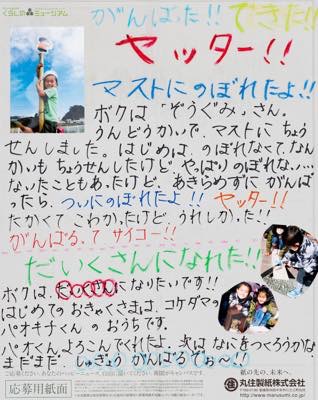 くらしのミュージアム
がんばった!! できた!!
ヤッター!!
マストにのぼれたよ!!
ボクは「ぞうぐみ」さん。
うんどうかいで、マストにちょう
せんしました。はじめは、のぼれなくて、なん
かいもちょうせんしたけど やっぱりのぼれな、、、
なったこともあったけど、あきらめずに がんば
ったら、ついにのぼれたよ!! ヤッター!!
たかくて こわかったけど、うれしかった!!
がんばるって サイコー!!
だいくさんになれた!!
ボクは、だいくさんになりたいです!!
はじめての おきゃくさまは、コケダマの
パオキチくん の おうちです。
パオくん、ようこんでくれたよ。次は なにをつくろうかな
まだまだ、しゅぎょう がんばるぞぉ〜!!
応募用紙面
紙の先の、未来へ。
丸住製紙株式会社
http://www.marusumi.co.jp/